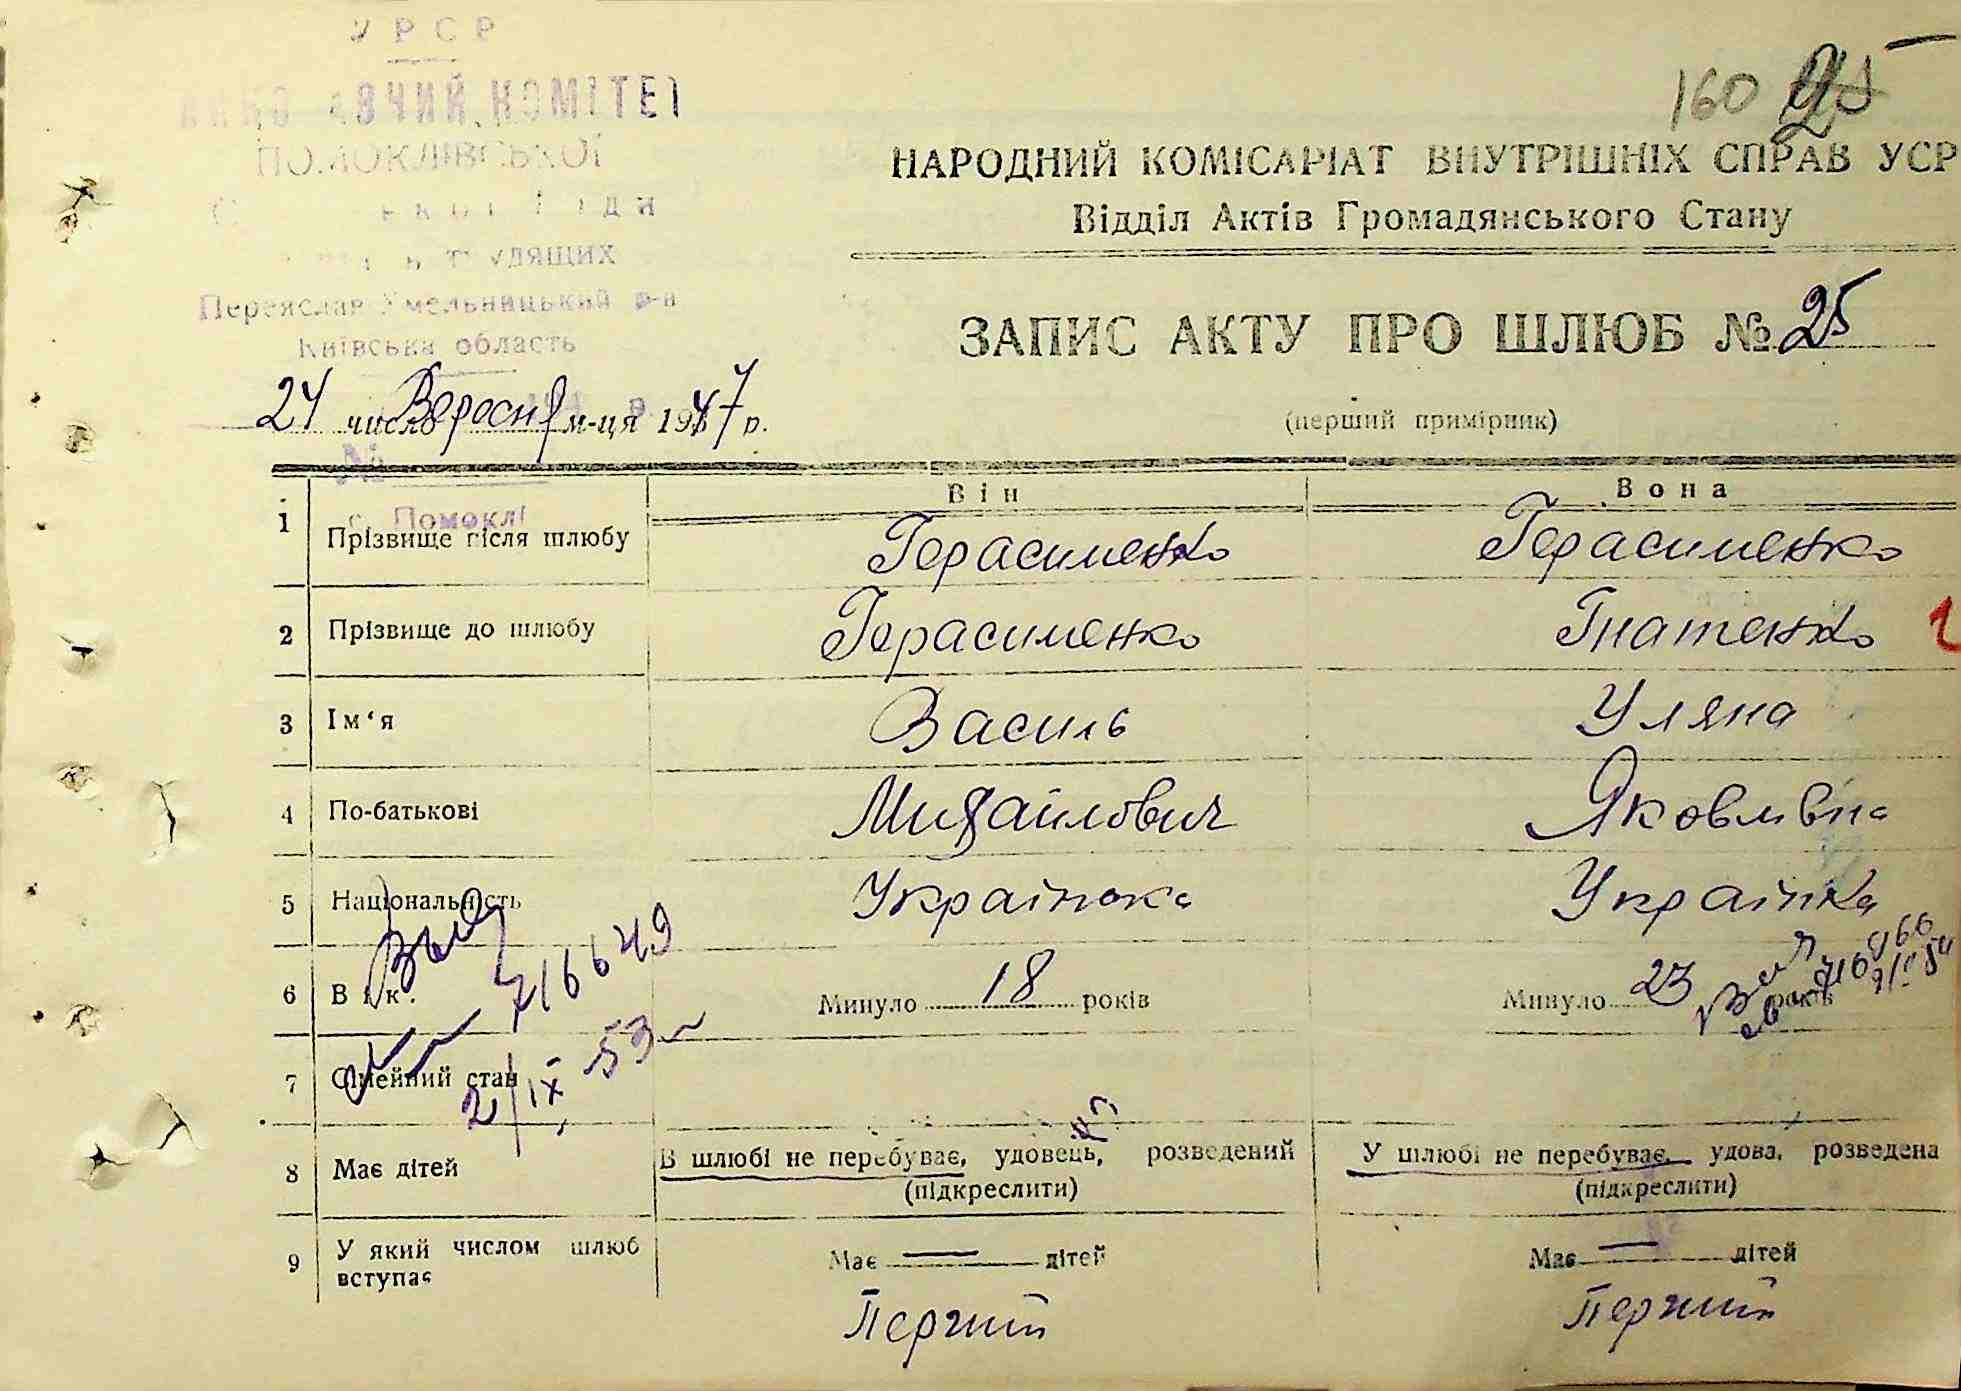 УРСР
КОМІТЕТ
ПОМОКЛІВСЬКОЇ
трудящих
Переяслав Хмельницький р-н
Київська область
160 25
НАРОДНИЙ КОМІСАРІАТ ВНУТРІШНІХ СПРАВ УСР
Відділ Актів Громадянського Стану
ЗАПИС АКТУ ПРО ШЛЮБ № 25
(перший примірник)
24 число Вересня м-ця 1947 р.
№
с. Помоклі
Він Вона
1 Прізвище після шлюбу Герасименко Герасименко
2 Прізвище до шлюбу Герасименко Гнатенко
3 Ім‘я Василь Уляна
4 По-батькові Михайлович Яковлівна
5 Національність Українка Українка
6 Вік. Минуло 18 років Минуло 23 років
716649
7 Сімейний стан
2/IX 53
8 Має дітей В шлюбі не перебуває, удовець, розведений У шлюбі не перебуває, удова, розведена
(підкреслити) (підкреслити)
9 У який числом шлюб вступає Має — дітей Має — дітей
Перший Перший